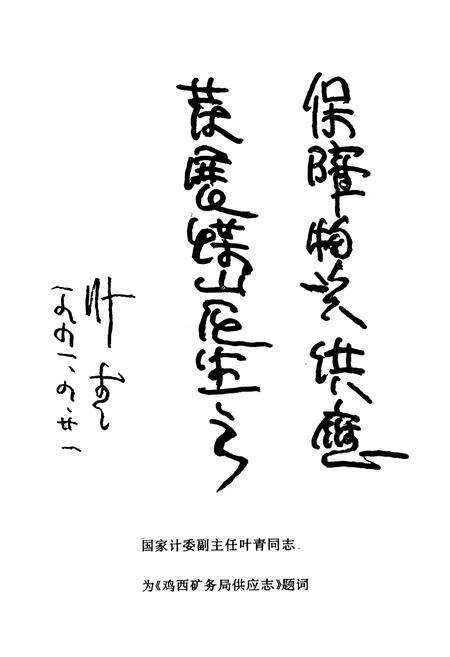 保障物资供應
發展煤炭生产
叶青
一九九一、九、廿一
国家计委副主任叶青同志
为《鸡西矿务局供应志》题词